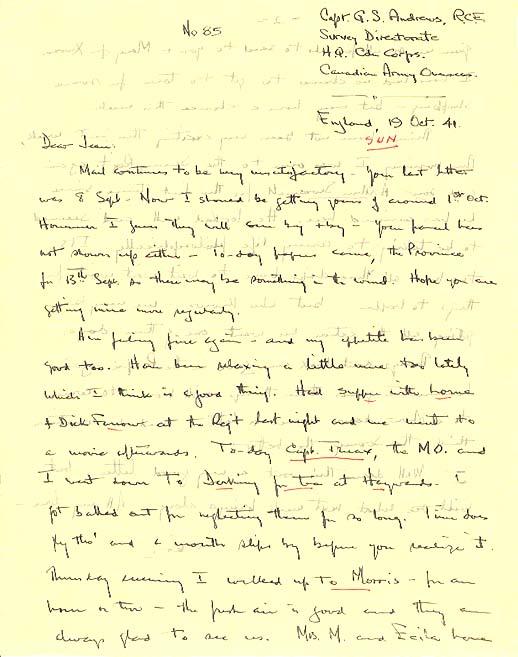 No 85
Capt. G. S. Andrews, R.C.E.
Survey Directorate
H.Q. Cdn Corps.
Canadian Army Overseas.
England, 19 Oct. 41.
SUN
Dear Jean:
Mail continues to be very unsatisfactory - Your last letter
was 8 Sept. Now I should be getting yours of around 1st Oct.
However I guess they will come by + by - Your parcel has
not shown up either - To-day papers came, the Province
for 13th Sept. so there may be something in the wind. Hope you are
getting mine more regularly.
Am feeling fine again - and my appetite has been
good too. Have been relaxing a little more too lately
which I think is a good thing. Had supper with
& Dick Farrow at the Regt last night and we went to
a movie afterwards. To-day Capt. the M.O. and
I went down to Dorking for tea at Haywards. I
got balled out for neglecting them for so long. Time does
fly tho' and a month slips by before you realize it.
Thursday evening I walked up to Morris - for an
hour or two - the fresh air is good and they are
always glad to see us. Mrs. M. and have